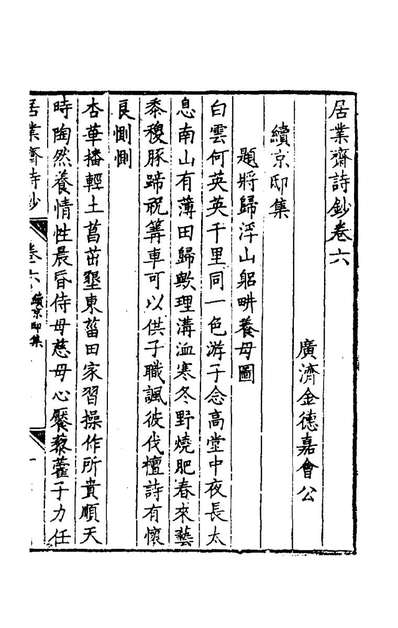 居業齋詩鈔卷六
廣濟金德嘉會公
續京邸集
題將歸浮山躬畊養母圖
白雲何英英千里同一色游子念高堂中夜長太
息南山有薄田歸歟理溝洫寒冬野燒肥春來藝
黍稷豚蹄祝篝車可以供子職諷彼伐檀詩有懷
良惻惻
杏華播輕土菖茁墾東菑田家習操作所貴順天
時陶然養情性晨昏侍母慈母心饜藜藿子力任
居業齋詩鈔 卷六 續京邸集 一